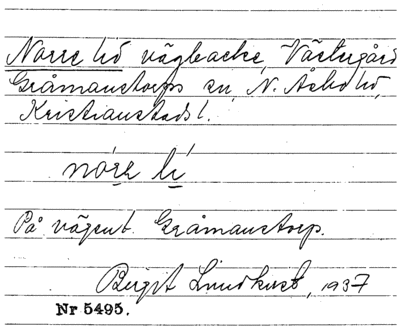 Norre lid vägbacke, Västergård
Gråmanstorps sn, N. Åsbo hd,
Kristianstads l.
nórr lí
På vägen t. Gråmanstorp.
Birgit Lindkvist, 1937
Nr 5495.